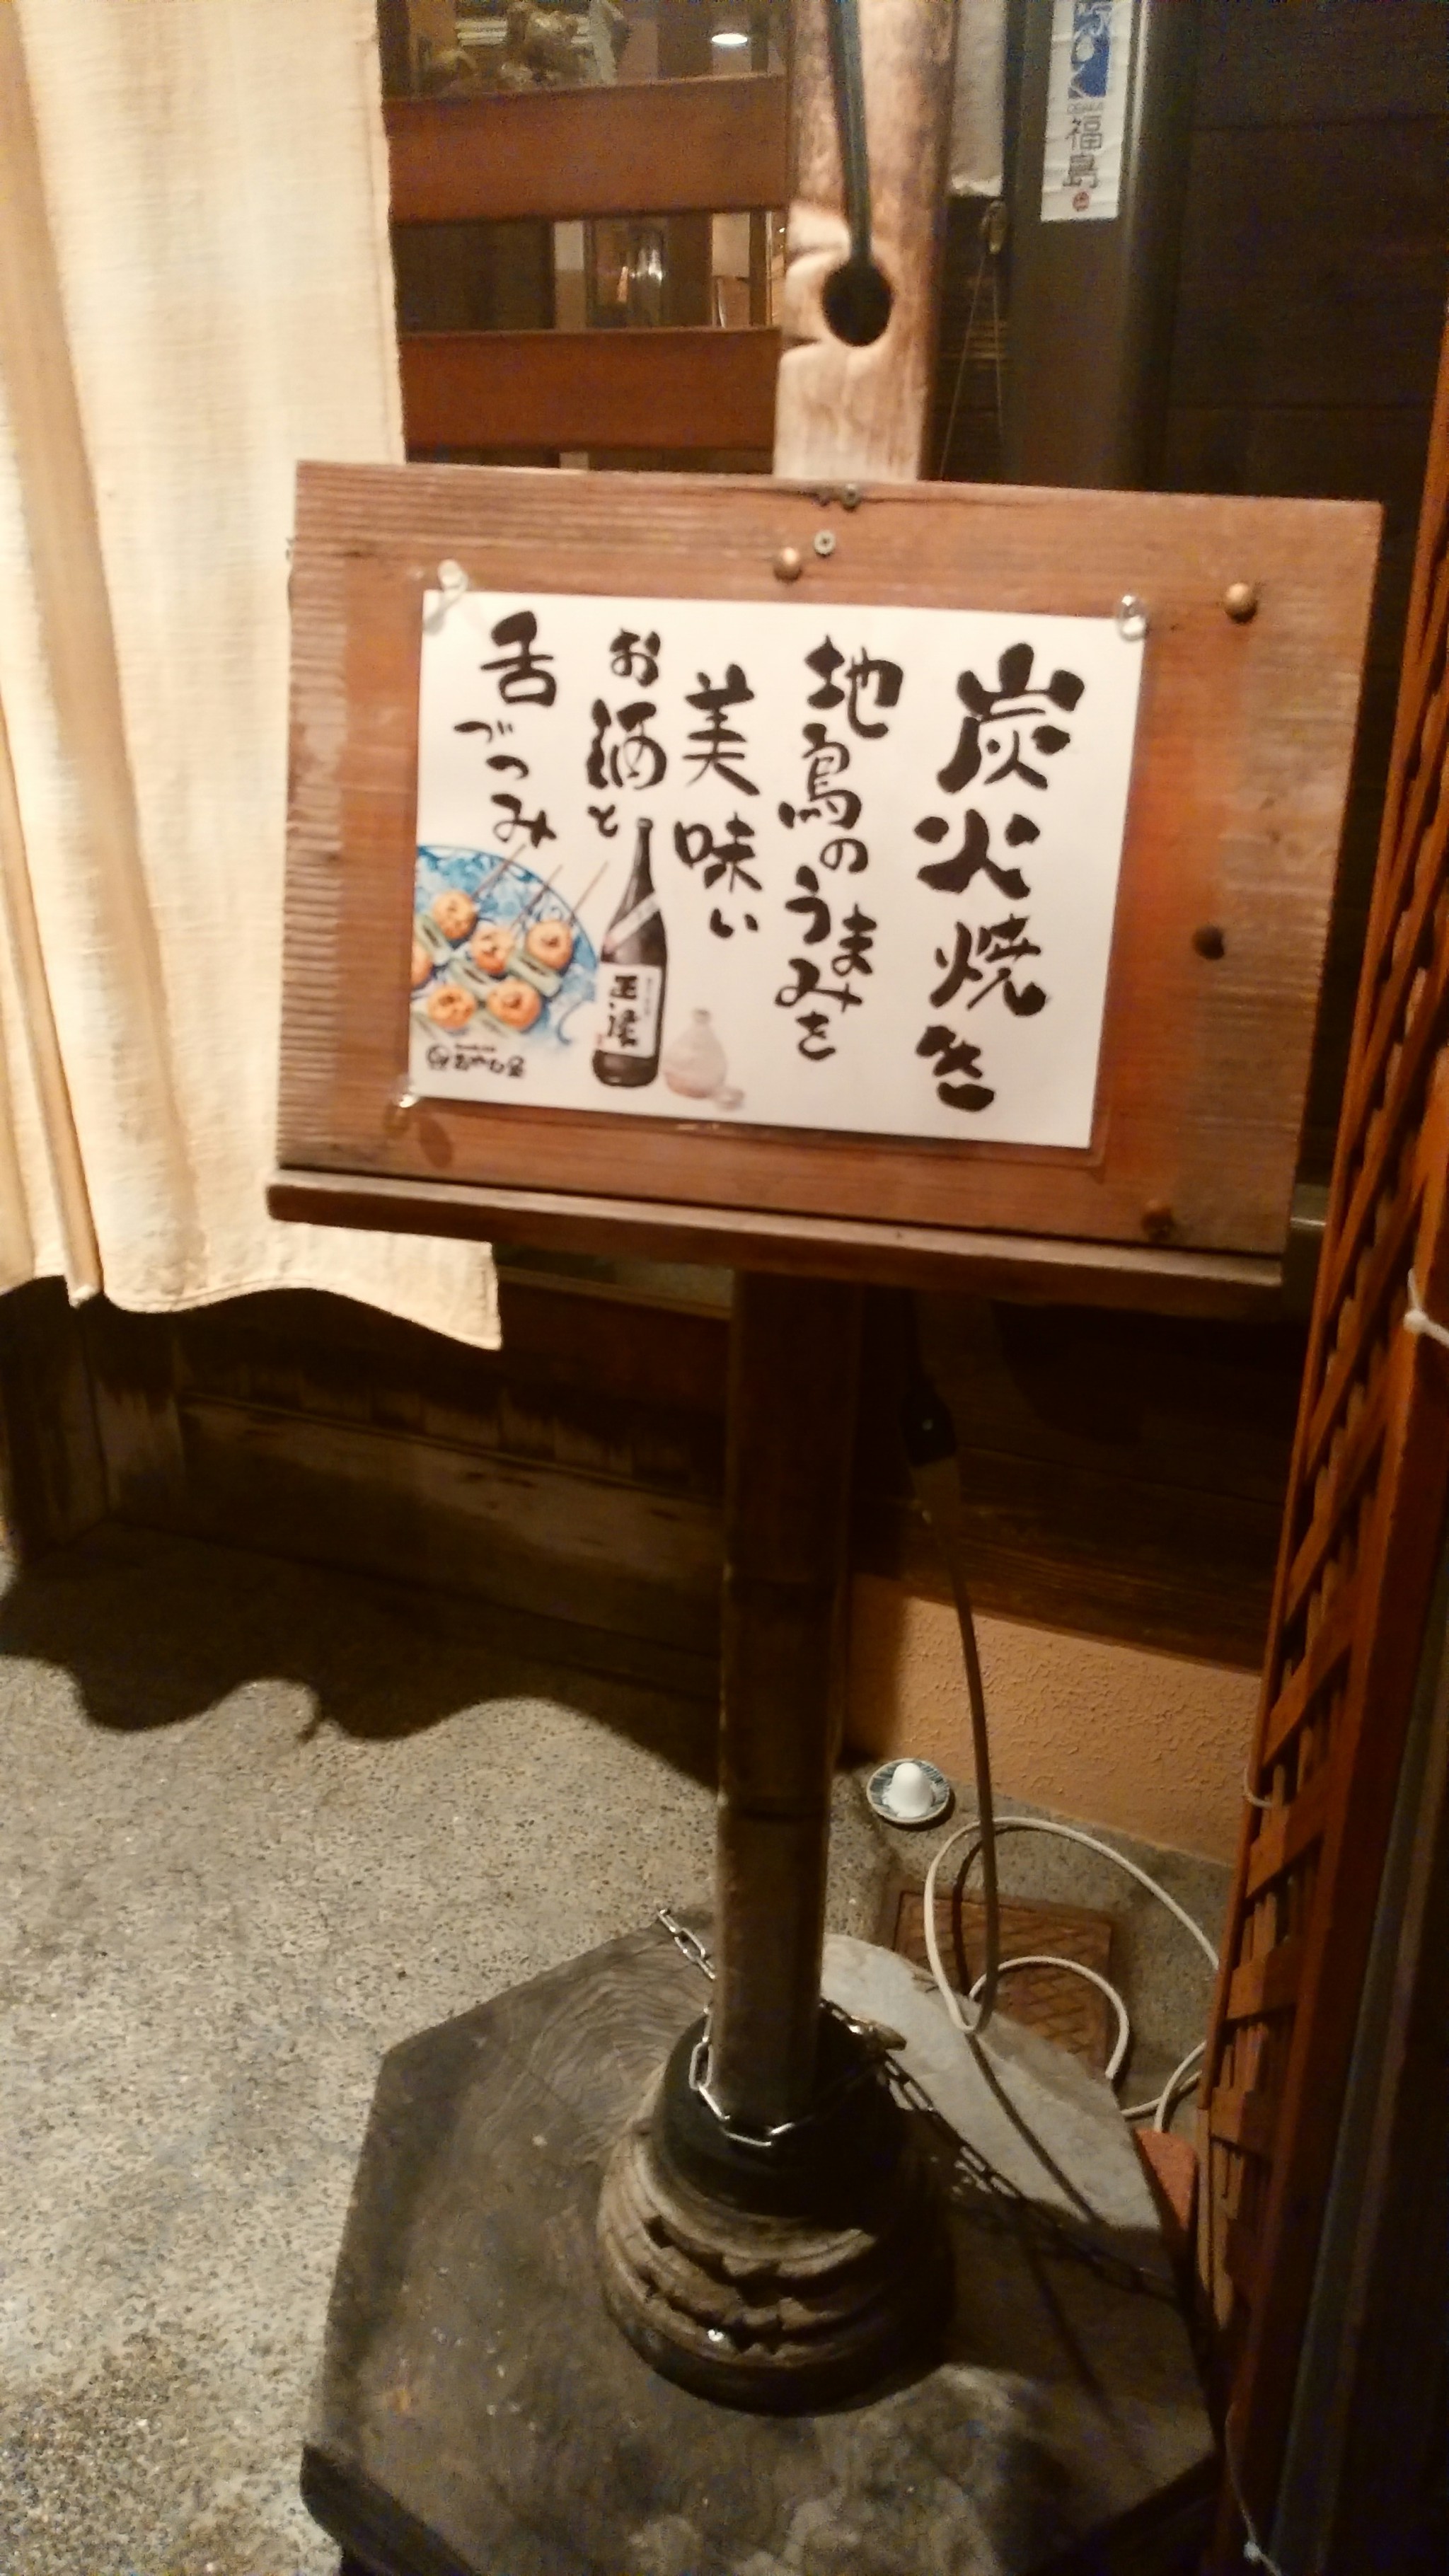 炭火焼き
地鳥のうまみを
美味い
お酒と
舌づつみ
OSAKA
福島